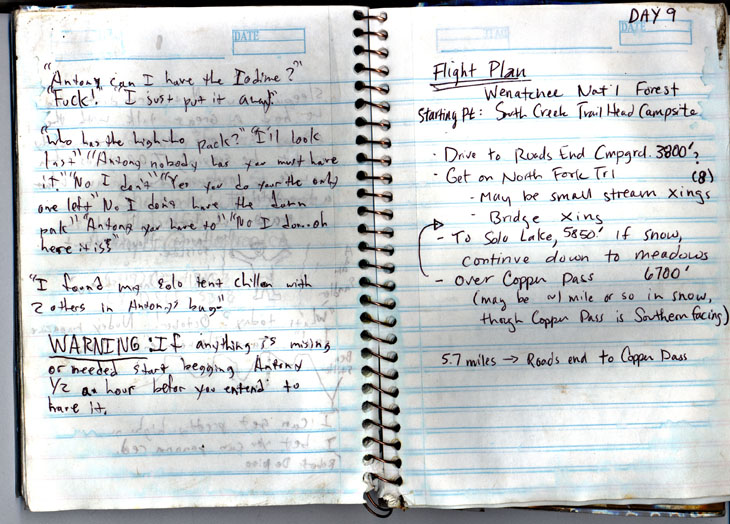 DATE
"Antony can I have the Iodine?"
"Fuck!" "I just put it away"
"Who has the high-lo pack?" "I'll look
last" "Antony nobody has you must have
it" "No I don't" "Yes you do your the only
one left" "No I don't have the damn
pak" "Antony you have to" "No I don..oh
here it is"
"I found my solo tent chillen with
2 others in Antonys bag"
WARNING: If anything is missing
or needed start begging Antony
1/2 an hour befor you entend to
have it.
DAY 9
DATE
Flight Plan
Wenatchee Nat'l Forest
Starting Pt: South Creek Trail Head Campsite
· Drive to Roads End Cmpgrd. 3800'?
· Get on North Fork Trl (8)
- May be small stream Xings
- Bridge Xing
- To Solo Lake, 5850' if snow,
continue down to meadows
- Over Copper Pass 6700'
(may be ~1 mile or so in snow,
though Copper Pass is Southern facing)
5.7 miles → Roads end to Copper Pass